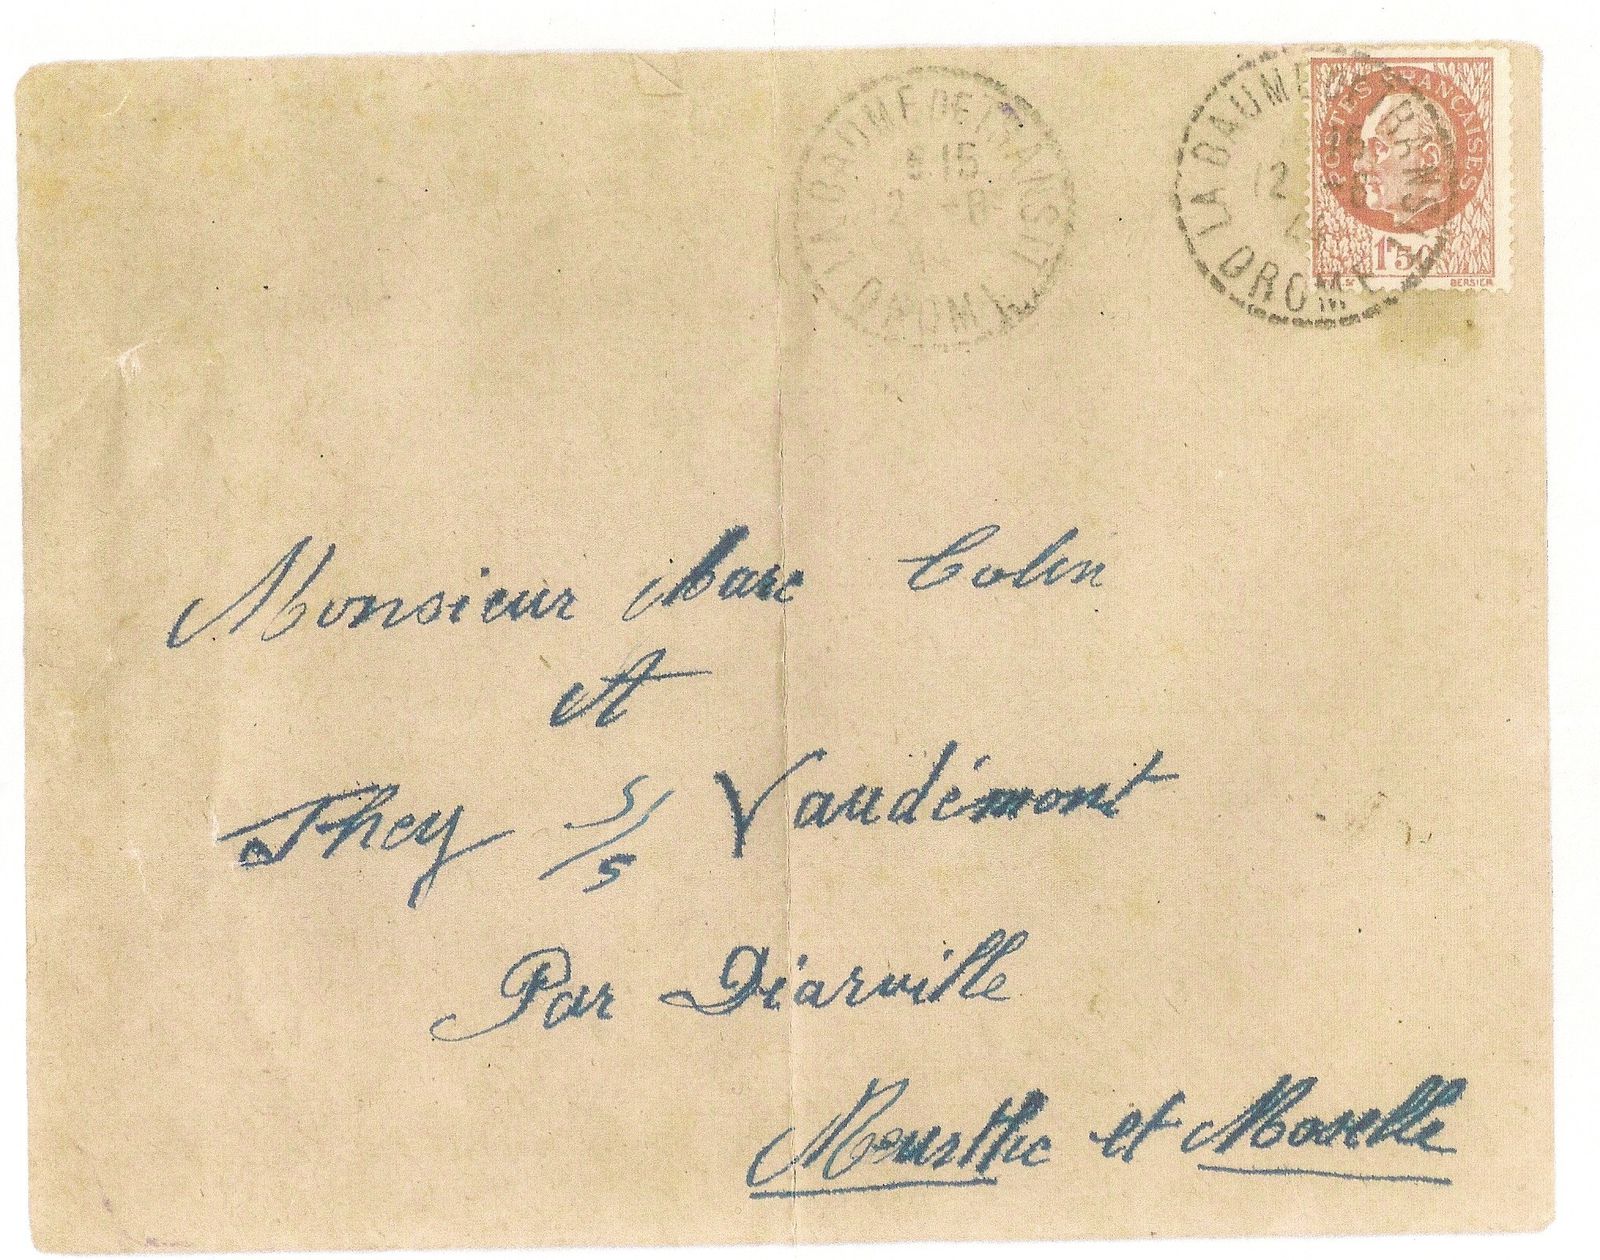 LA BAUME DE TRANSIT
15
2 -6-
DROME
LA BAUME DE TRANSIT
12
DROME
POSTES FRANÇAISES
1F50
BERSIER
Monsieur Marc Colin
At
They s/s Vaudémont
Par Diarville
Meurthe et Moselle